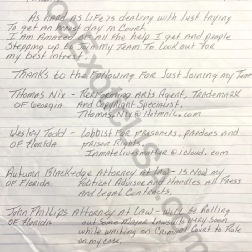 As hard as life is dealing with just trying
to get an day in court.
I am Honored by all the help I get and people
Stepping up to join my Team To Look out for
my best Interest.
Thanks to the following For Just Joining my Team
Thomas Nix - Arts Agent, Trademark
of Georgia And Copyright Specialist.
Hotmail.com
Wesley Todd - Lobbyist for prisoners, pardons and
of Florida prison Rights.
@icloud.com
Autumn Blackledge Attorney at Law - Is Now my
of Florida. Political Advisor and Handles All Press
And Legal Contracts.
John Phillips Attorney at Law - Will be Rolling
of Florida out Some Very Soon
while waiting on Criminal Court to Rule
on my case.